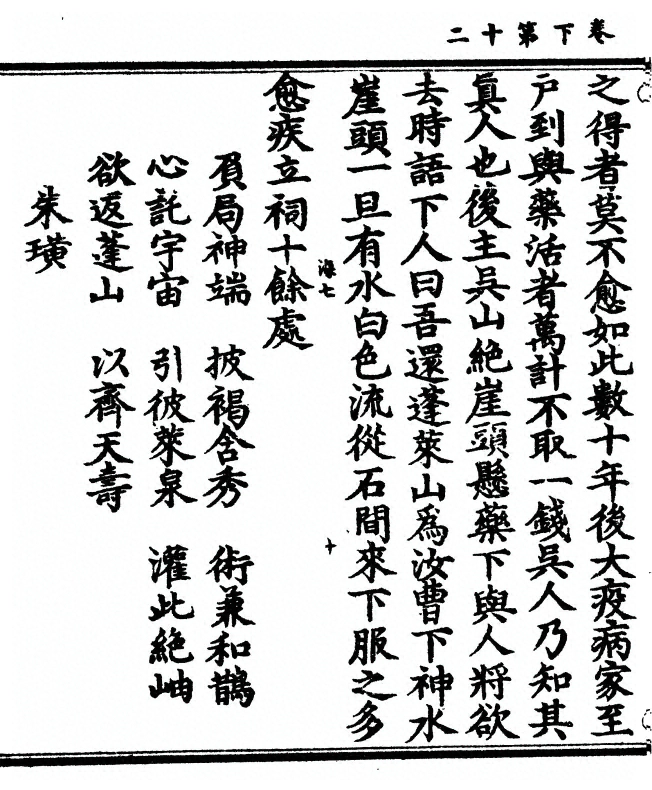 卷下第十二
之得者莫不愈如此數十年後大疫病家至
戶到與藥活者萬計不取一錢吳人乃知其
眞人也後主吳山絶崖頭懸藥下與人將欲
去時語下人曰吾還蓬萊山爲汝曹下神水
崖頭一旦有水白色流從石間來下服之多
海七
十
愈疾立祠十餘處
負局神端 披褐含秀 術兼和鵲
心託宇宙 引彼萊泉 灌此絶岫
欲返蓬山 以齊天壽
朱璜